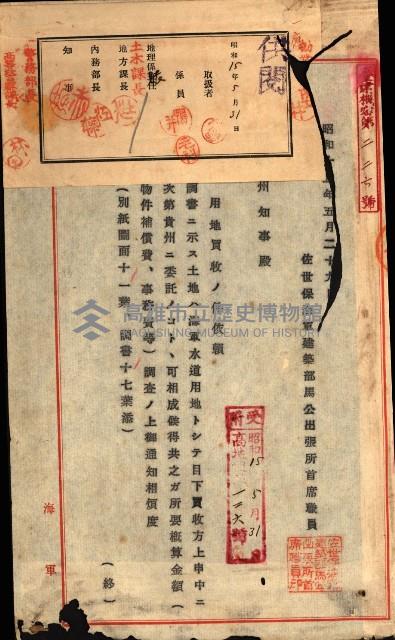 供閲
昭和15年5月31日
取扱者
係員
地理係主任
土木課長
地方課長
内務部長
知事
警務部長
第二二六號
昭和十五年五月二十九日
佐世保海軍建築部馬公出張所首席職員
州知事殿
用地買收ノ件依頼
調書ニ示ス土地ハ海軍水道用地トシテ目下買收方上申中ニ
次第貴州ニ委託ノコト、可相成候得共之ガ所要概算金額(
物件補償費、事務費等)調査ノ上御通知相煩度
(別紙圖面十一葉、調書十七葉添)
(終)
受附
昭和15 5月31
高地
一二六號
海軍
高雄市立歷史博物館
KAOHSIUNG MUSEUM OF HISTORY